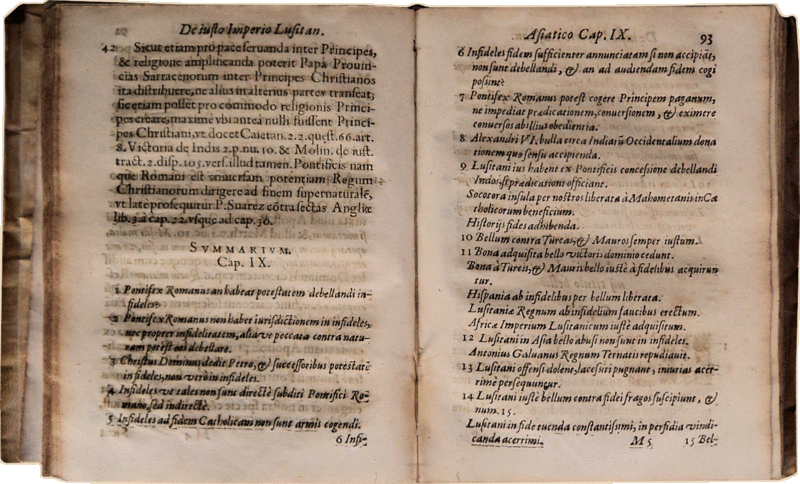 De iusto Imperio Lusitan.
42 Sicut etiam pro pace seruanda inter Principes,
& religione amplificanda poterit Papa Prouin-
cias Sarracenorum inter Principes Christianos
ita distribuere, ne alius in alterius partes transeat;
sic etiam posset pro commodo religionis Princi-
pes creare, maximè vbi antea nulli fuissent Princi-
pes Christiani, vt docet Caietan. 2. 2. quęst. 66. art.
8. Victoria de Indis 2. p. nu. 10. & Molin. de iust.
tract. 2. disp. 105. vers. illud tamen. Pontificis nam
que Romani est vniuersam potentiam Regum
Christianorum dirigere ad finem supernaturalẽ,
vt latè prosequitur P. Suarez cõtra sectas Angliæ
lib. 3. à cap. 22. vsque ad cap. 30.
SVMMARIVM.
Cap. IX.
1 Pontifex Romanus an habeat potestatem debellandi in-
fideles?
2 Pontifex Romanus non habet iurisdictionem in infideles,
nec propter infidelitatem, aliave peccata contra natu-
ram potest eos debellare.
3 Christus Dominus dedit Petro, & successoribus potestatẽ
in fideles, non verò in infideles.
4 Infideles vt tales non sunt directè subditi Pontifici Ro-
mano, sed indirectè.
5 Infideles ad fidem Catholicam non sunt armis cogendi.
6 Infi-
Asiatico Cap. IX. 93
6 Infideles fidem sufficienter annunciatam si non accipiãt,
non sunt debellandi, & an ad audiendam fidem cogi
possint?
7 Pontifex Romanus potest cogere Principem paganum,
ne impediat prædicationem, conuersionem, & eximere
conuersos ab illius obedientia.
8 Alexandri VI. bulla circa Indiarũ Occidentalium dona
tionem quo sensu accipienda.
9 Lusitani ius habent ex Pontificis concessione debellandi
Indos, si prædicationi officiant.
Socotora insula per nostros liberata à Mahometanis in Ca
tholicorum beneficium.
Historijs fides adhibenda.
10 Bellum contra Turcas, & Mauros semper iustum.
11 Bona adquisita bello victoris dominio cedunt.
Bona à Turcis, & Mauris bello iustè à fidelibus acquirun
tur.
Hispania ab infidelibus per bellum liberata.
Lusitaniæ Regnum ab infidelium faucibus erectum.
Africæ Imperium Lusitanicum iustè adquisitum.
12 Lusitani in Asia bello abusi non sunt in infideles.
Antonius Galuanus Regnum Ternatis repudiauit.
13 Lusitani offensi dolent, lacessiti pugnant, iniurias acer-
rimè persequuntur.
14 Lusitani iustè bellum contra fidei fragos suscipiunt, &
num. 15.
Lusitani in fide tuenda constantissimi, in perfidia vindi-
canda acerrimi.
M 5
15 Bel-